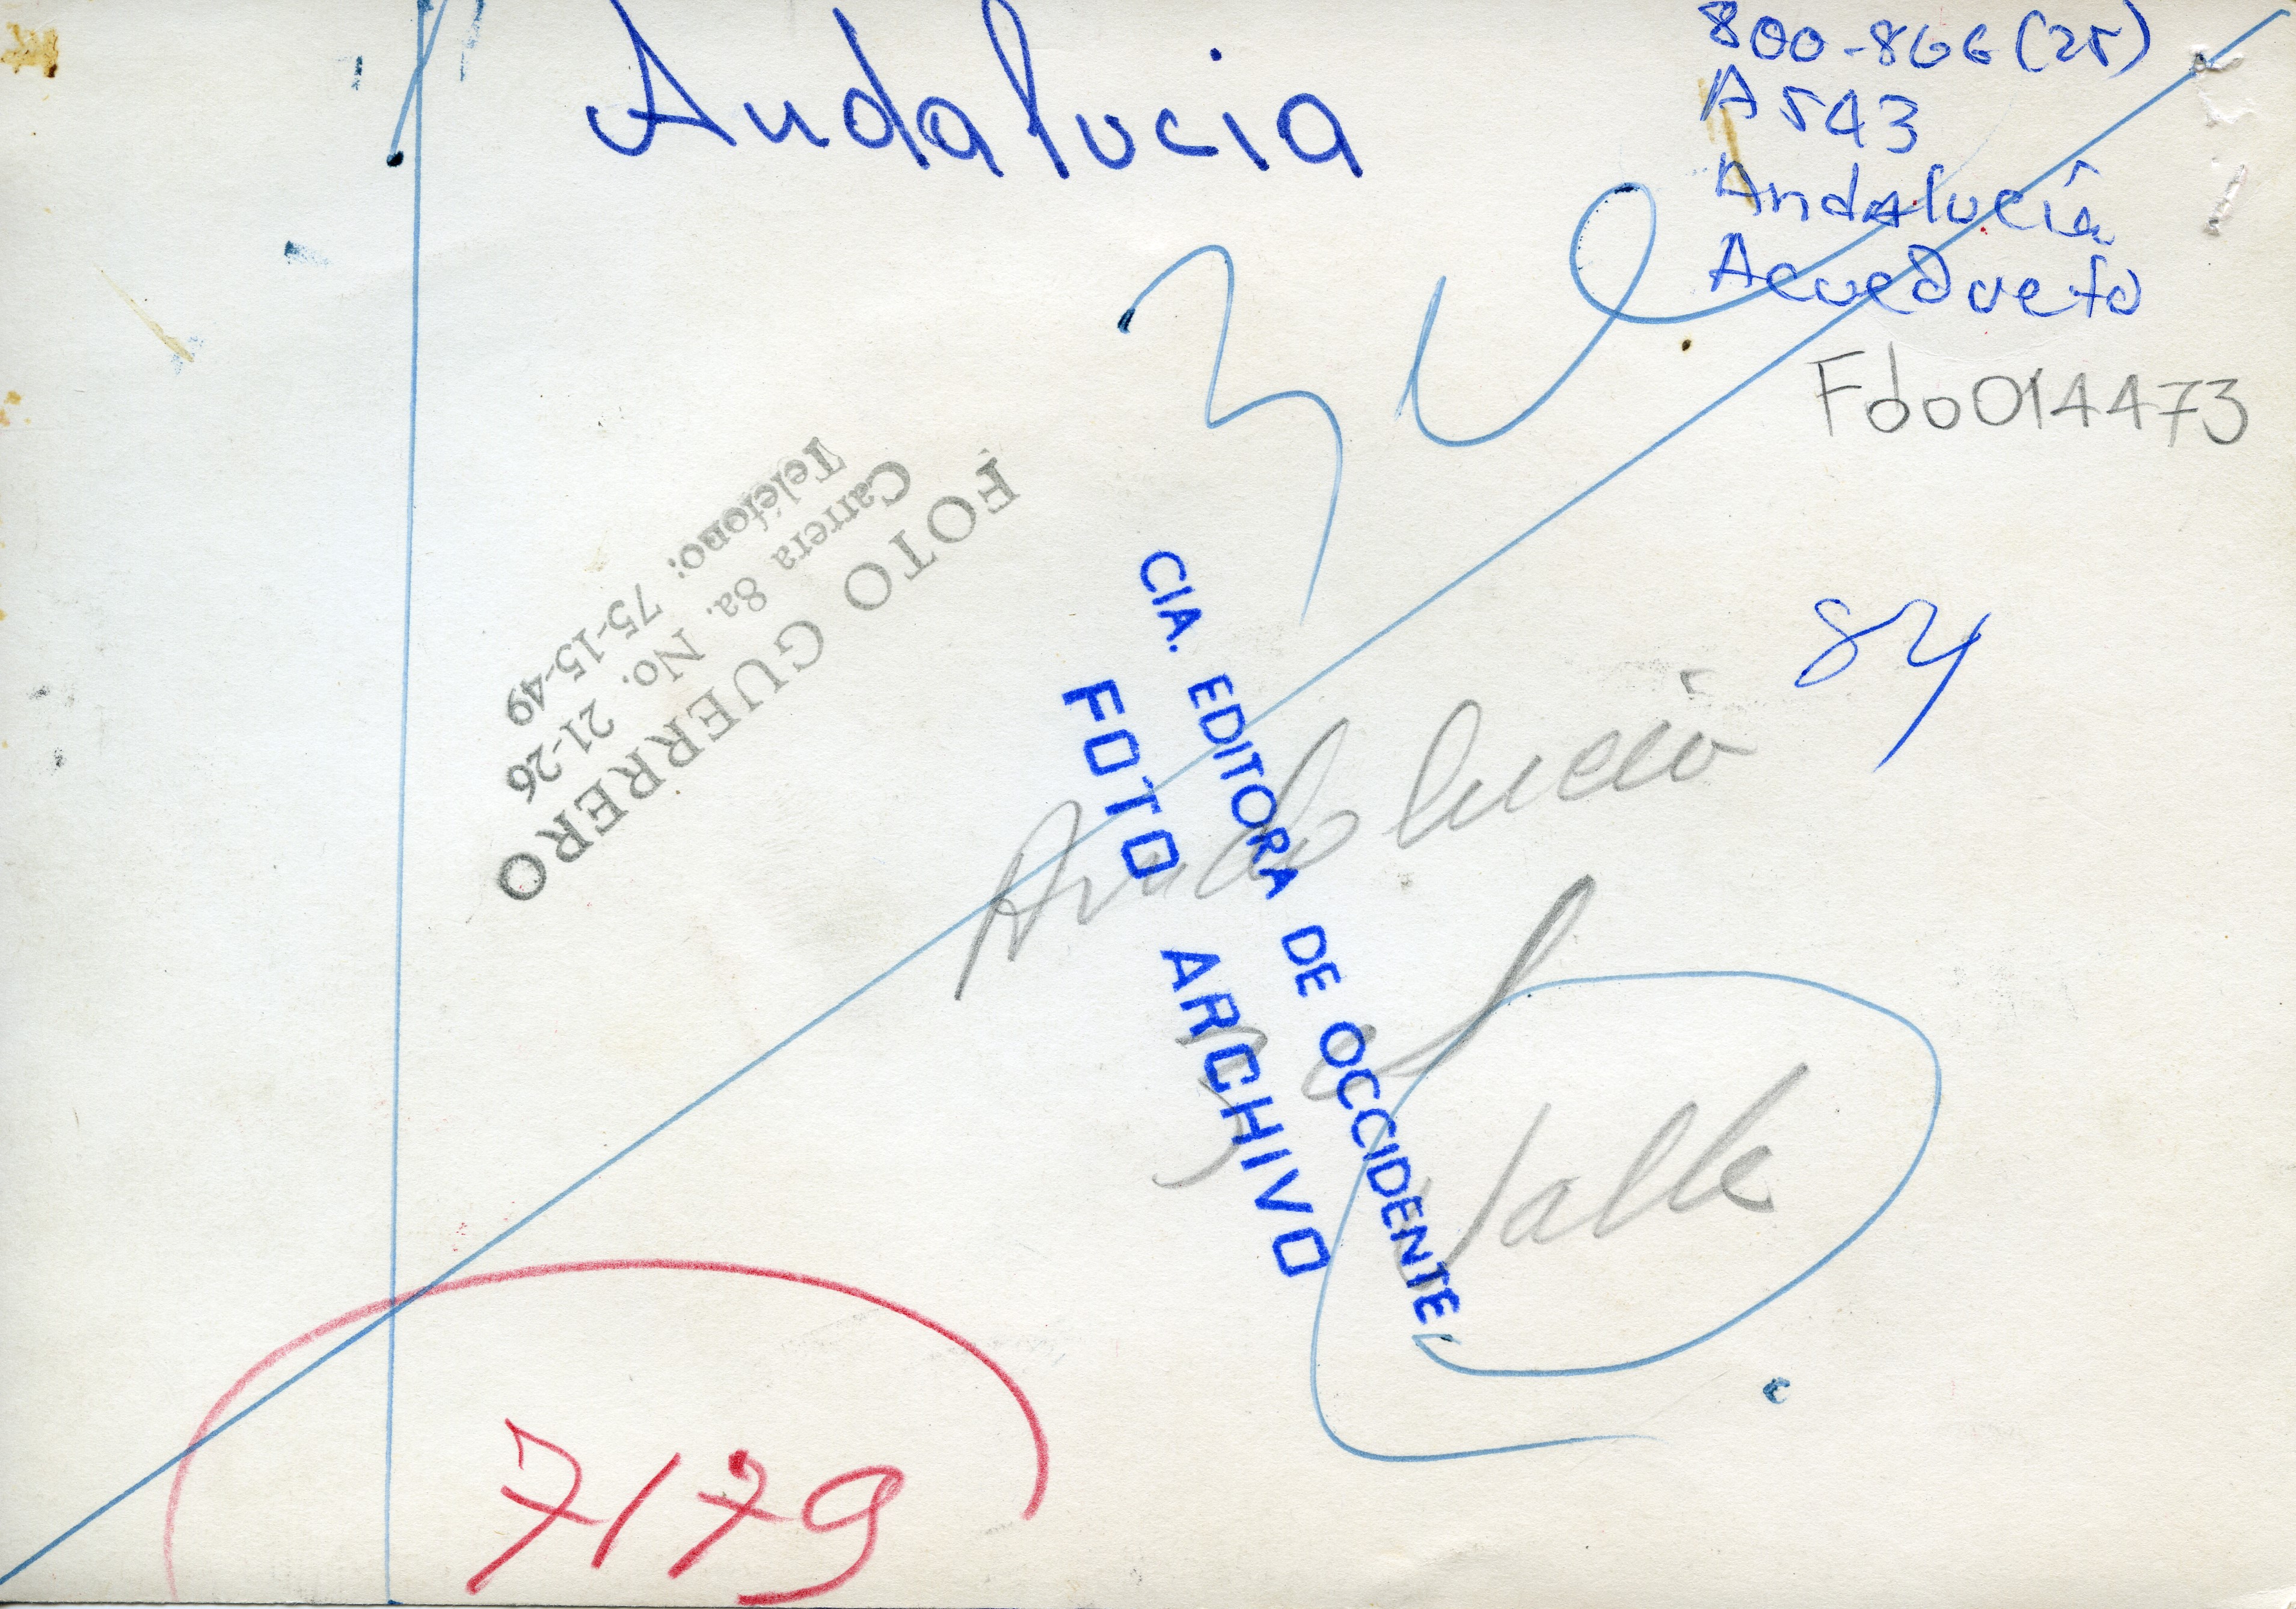 Andalucia
800-866(25)
A543
Andalucía
Acueducto
Fdo014473
84
FOTO GUERRERO
Carrera 8a. No. 21-26
Teléfono: 75-15-49
CIA. EDITORA DE OCCIDENTE
FOTO ARCHIVO
Andalucía
Valle
7179